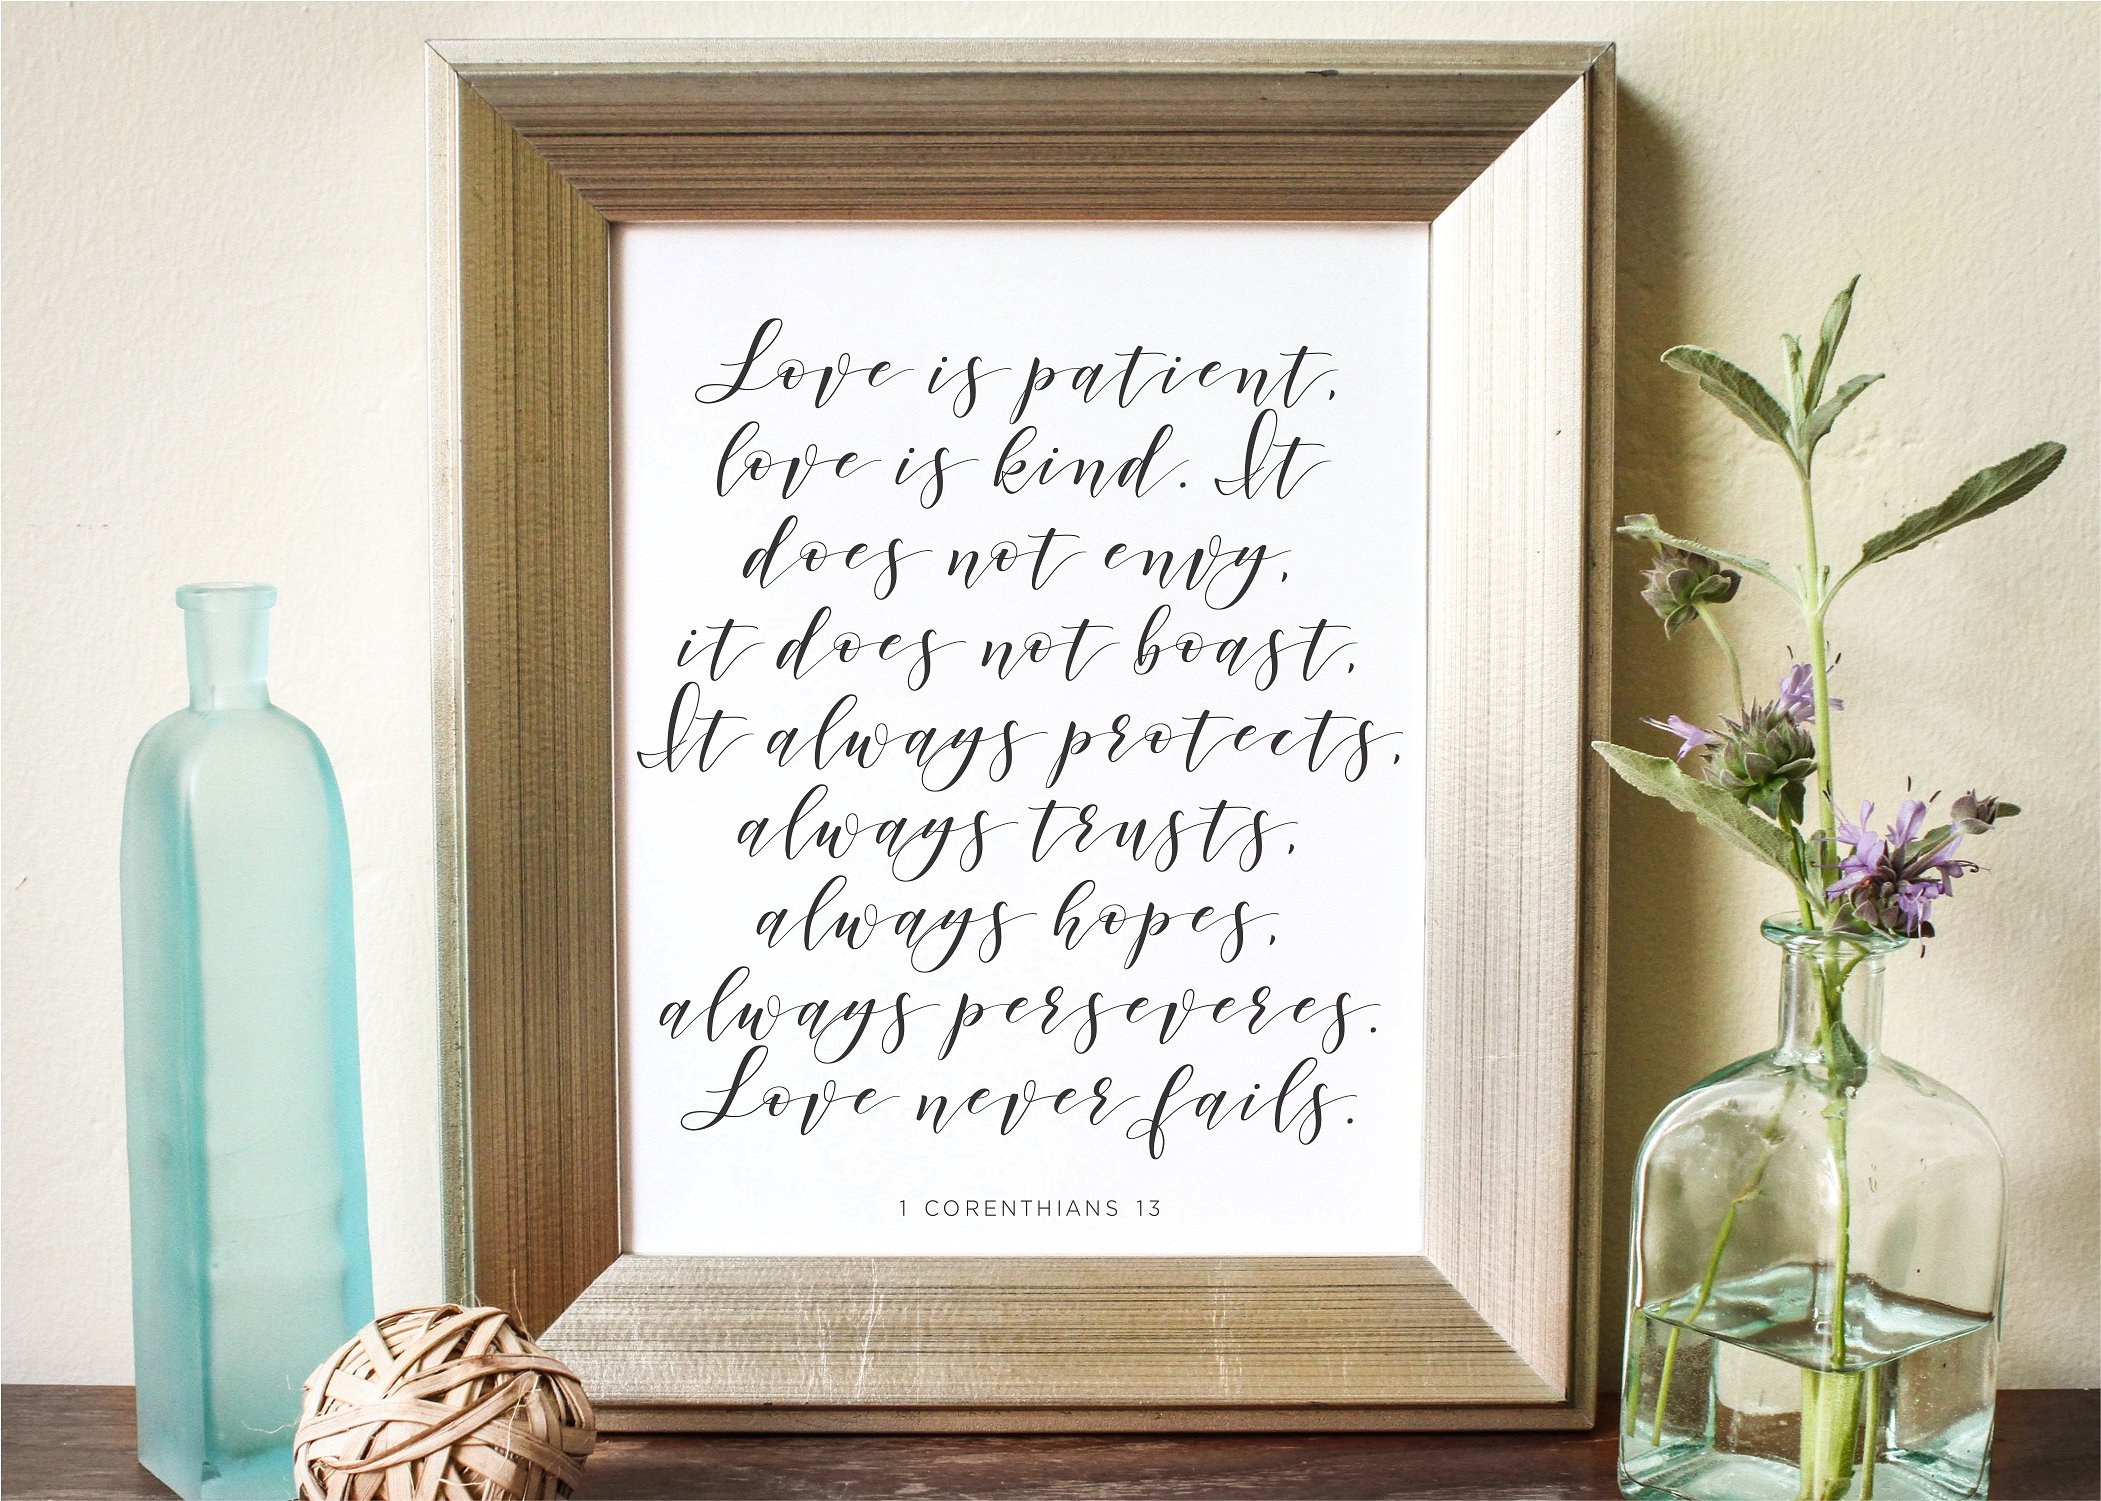 Love is patient,
love is kind. It
does not envy,
it does not boast,
It always protects,
always trusts,
always hopes,
always perseveres.
Love never fails.
1 CORENTHIANS 13